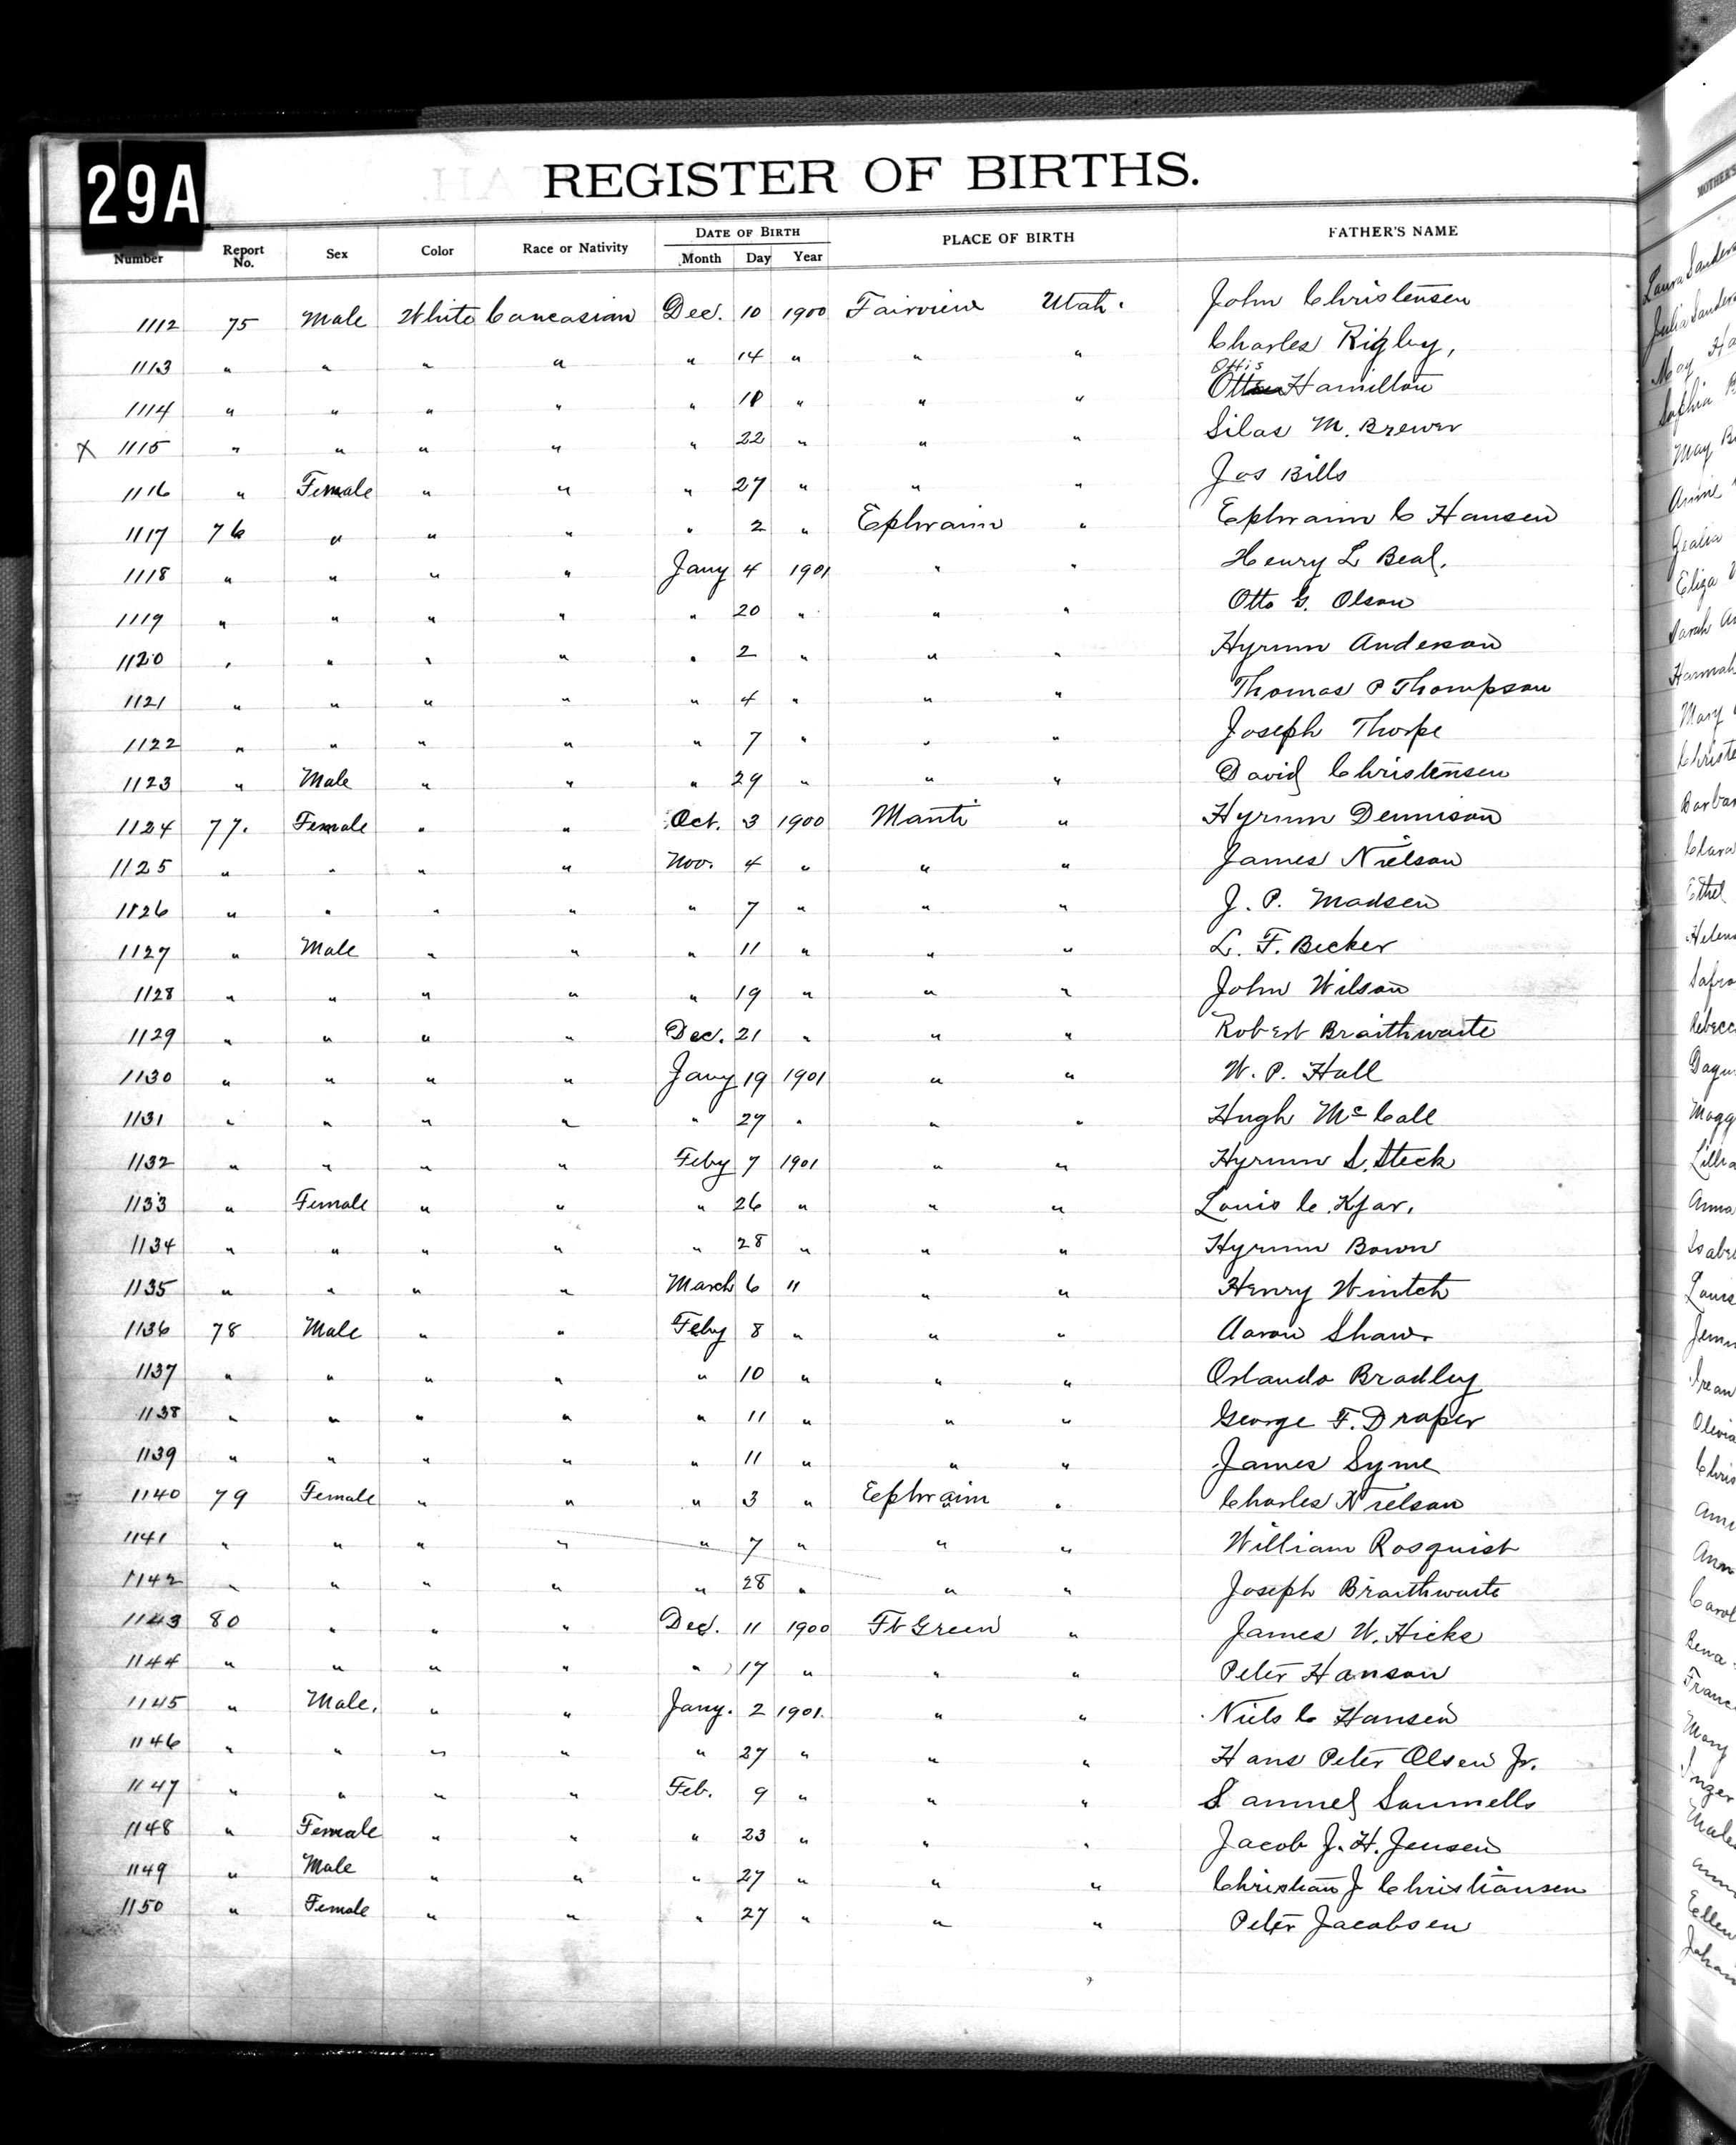 29A
REGISTER OF BIRTHS.
Number Report No. Sex Color Race or Nativity DATE OF BIRTH Month Day Year PLACE OF BIRTH FATHER'S NAME
1112 75 Male White Caucasian Dec. 10 1900 Fairview Utah. John Christensen
1113 " " " " " 14 " " " Charles Rigby,
Ottis
1114 " " " " " 18 " " " Hamilton
X 1115 " " " " " 22 " " " Silas M. Brewer
1116 " Female " " " 27 " " " Jos Bills
1117 76 " " " " 2 " Ephraim " Ephraim C Hansen
1118 " " " " Jany 4 1901 " " Henry L Beal.
1119 " " " " " 20 " " " Otto G. Olson
1120 " " " " " 2 " " " Hyrum Anderson
1121 " " " " " 4 " " " Thomas P Thompson
1122 " " " " " 7 " " " Joseph Thorpe
1123 " Male " " " 29 " " " David Christensen
1124 77. Female " " Oct. 3 1900 Manti " Hyrum Dennison
1125 " " " " Nov. 4 " " " James Nielson
1126 " " " " " 7 " " " J. P. Madsen
1127 " Male " " " 11 " " " L. F. Becker
1128 " " " " " 19 " " " John Wilson
1129 " " " " Dec. 21 " " " Robert Braithwaite
1130 " " " " Jany 19 1901 " " W. P. Hall
1131 " " " " " 27 " " " Hugh McCall
1132 " " " " Feby 7 1901 " " Hyrum S. Steck
1133 " Female " " " 26 " " " Louis C. Kjar.
1134 " " " " " 28 " " " Hyrum Bown
1135 " " " " March 6 11 " " Henry Wintch
1136 78 Male " " Feby 8 " " " Aaron Shaw
1137 " " " " " 10 " " " Orlando Bradley
1138 " " " " " 11 " " " George F. Draper
1139 " " " " " 11 " " " James Syme
1140 79 Female " " " 3 " Ephraim " Charles Nielson
1141 " " " " " 7 " " " William Rosquist
1142 " " " " " 28 " " " Joseph Braithwaite
1143 80 " " " Dec. 11 1900 Ft Green " James W. Hicks
1144 " " " " " 17 " " " Peter Hanson
1145 " Male. " " Jany. 2 1901. " " Niels C Hansen
1146 " " " " " 27 " " " Hans Peter Olsen Jr.
1147 " " " " Feb. 9 " " " Samuel Saunnells
1148 " Female " " " 23 " " " Jacob J. H. Jensen
1149 " Male " " " 27 " " " Christian J Christiansen
1150 " Female " " " 27 " " " Peter Jacobsen